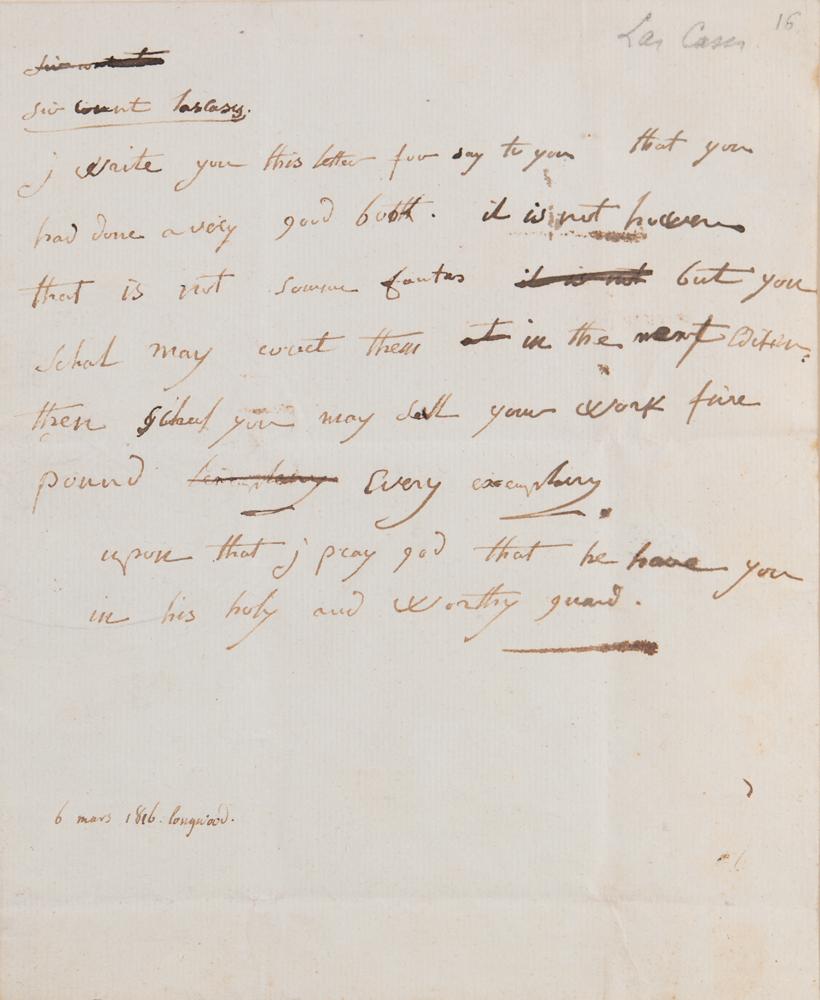 Las Cases 16
sir count lascases.
j write you this letter for say to you that you
had done a very good bott. it is not however
that is not somme fautes it is not but you
schal may corect them at in the next edition;
then schal you may sell your work five
pound Every exemplary
upon that j pray god that he have you
in his holy and worthy guard.
6 mars 1816. longwood.